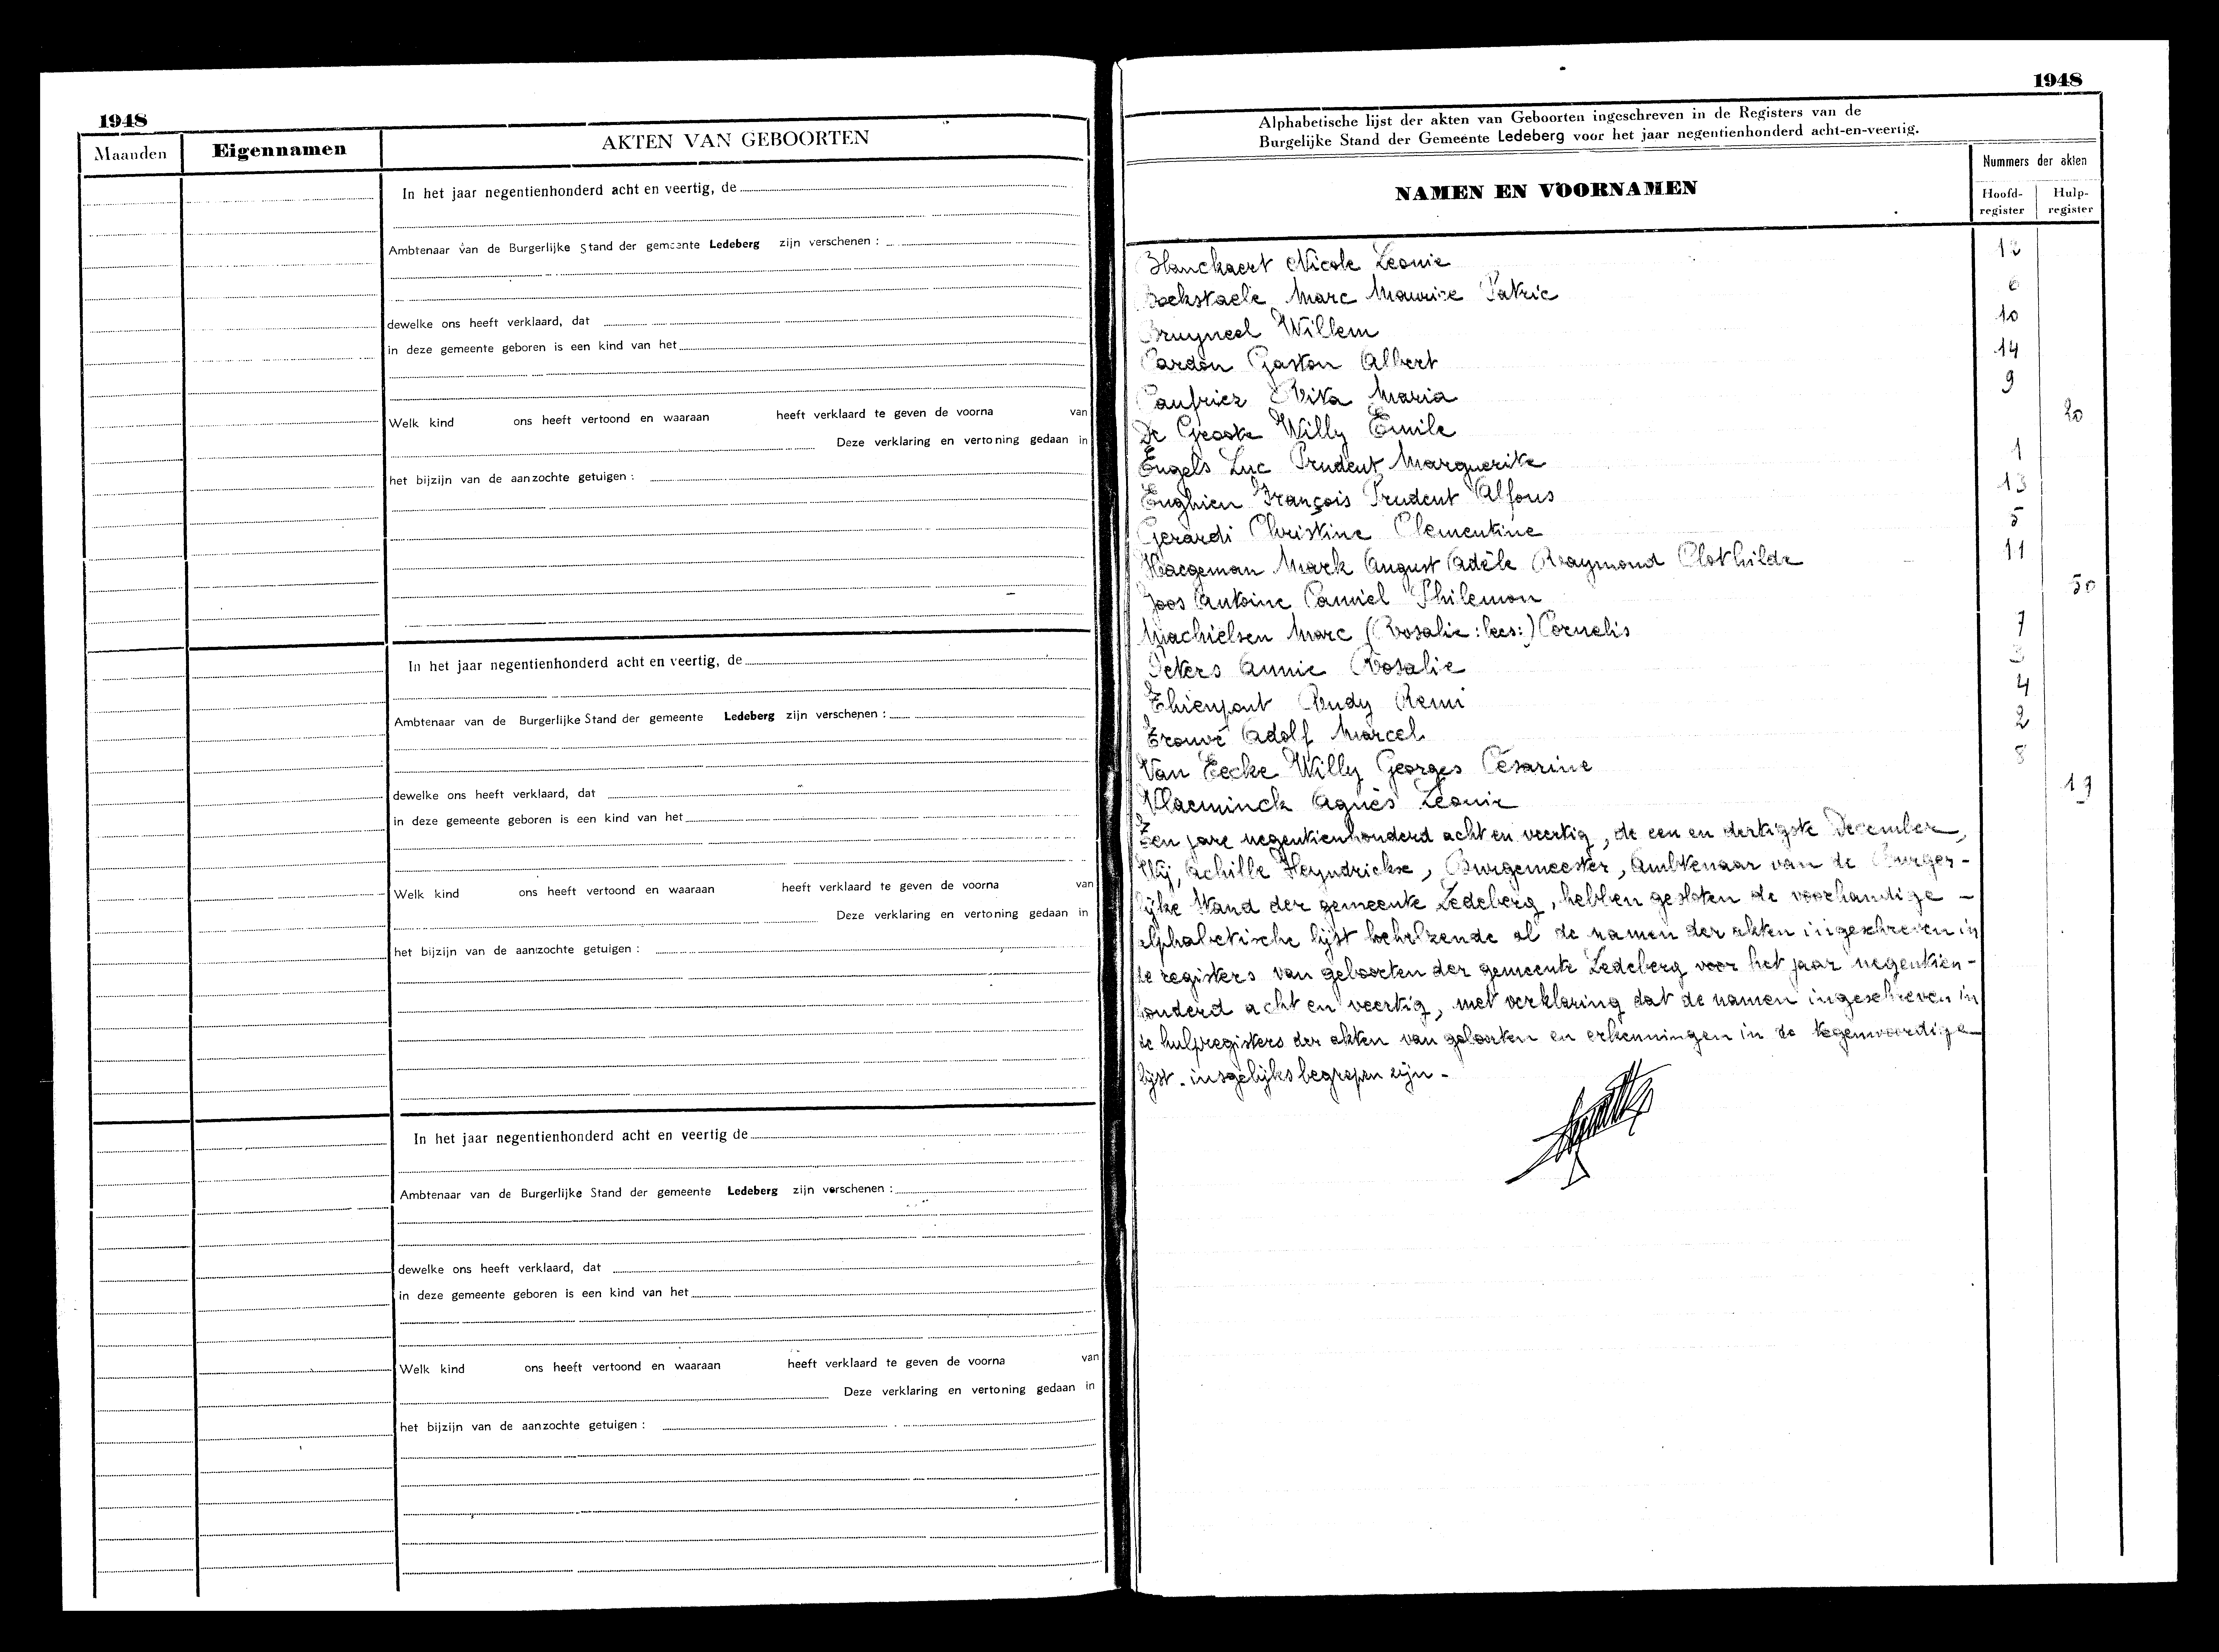 1948
Maanden Eigennamen AKTEN VAN GEBOORTEN
In het jaar negentienhonderd acht en veertig, de
Ambtenaar van de Burgerlijke Stand der gemeente Ledeberg zijn verschenen :
dewelke ons heeft verklaard, dat
in deze gemeente geboren is een kind van het
Welk kind ons heeft vertoond en waaraan heeft verklaard te geven de voorna van
Deze verklaring en vertoning gedaan in
het bijzijn van de aanzochte getuigen :
In het jaar negentienhonderd acht en veertig, de
Ambtenaar van de Burgerlijke Stand der gemeente Ledeberg zijn verschenen :
dewelke ons heeft verklaard, dat
in deze gemeente geboren is een kind van het
Welk kind ons heeft vertoond en waaraan heeft verklaard te geven de voorna van
Deze verklaring en vertoning gedaan in
het bijzijn van de aanzochte getuigen :
In het jaar negentienhonderd acht en veertig de
Ambtenaar van de Burgerlijke Stand der gemeente Ledeberg zijn verschenen :
dewelke ons heeft verklaard, dat
in deze gemeente geboren is een kind van het
Welk kind ons heeft vertoond en waaraan heeft verklaard te geven de voorna van
Deze verklaring en vertoning gedaan in
het bijzijn van de aanzochte getuigen :
1948
Alphabetische lijst der akten van Geboorten ingeschreven in de Registers van de
Burgelijke Stand der Gemeente Ledeberg voor het jaar negentienhonderd acht-en-veertig.
NAMEN EN VOORNAMEN
Nummers der akten
Hoofd-register Hulp-register
Blanckaert Nicole Leonie 12
Bockstaele Marc Maurice Patric 6
Bruyneel Willem 10
Cardon Gaston Albert 14
Caufriez Rita Maria 9
De Groote Willy Emile 20
Engels Luc Prudent Marguerite 1
Enghien François Prudent Alfons 13
Gerardi Christine Clementine 5
Haegeman Mark August Adèle Raymond Clothilde 11
Joos Antoine Camiel Philemon 50
Machielsen Marc (Rosalie : lees:) Cornelis 7
Peters Annie Rosalie 3
Thienpont Rudy Remi 4
Trouvé Adolf Marcel 2
Van Eecke Willy Georges Césarine 8
Vlaeminck Agnès Leonie 19
Ten jare negentienhonderd acht en veertig, de een en dertigste December,
Wij, Achille Heyndrickse, Burgemeester, Ambtenaar van de Burger-
lijke Stand der gemeente Ledeberg, hebben gesloten de voorhandige -
alphabetische lijst behelzende al de namen der akten ingeschreven in
de registers van geboorten der gemeente Ledeberg voor het jaar negentien-
honderd acht en veertig, met verklaring dat de namen ingeschreven in
de hulpregisters der akten van geboorten en erkenningen in de tegenwoordige
lijst insgelijks begrepen zijn -